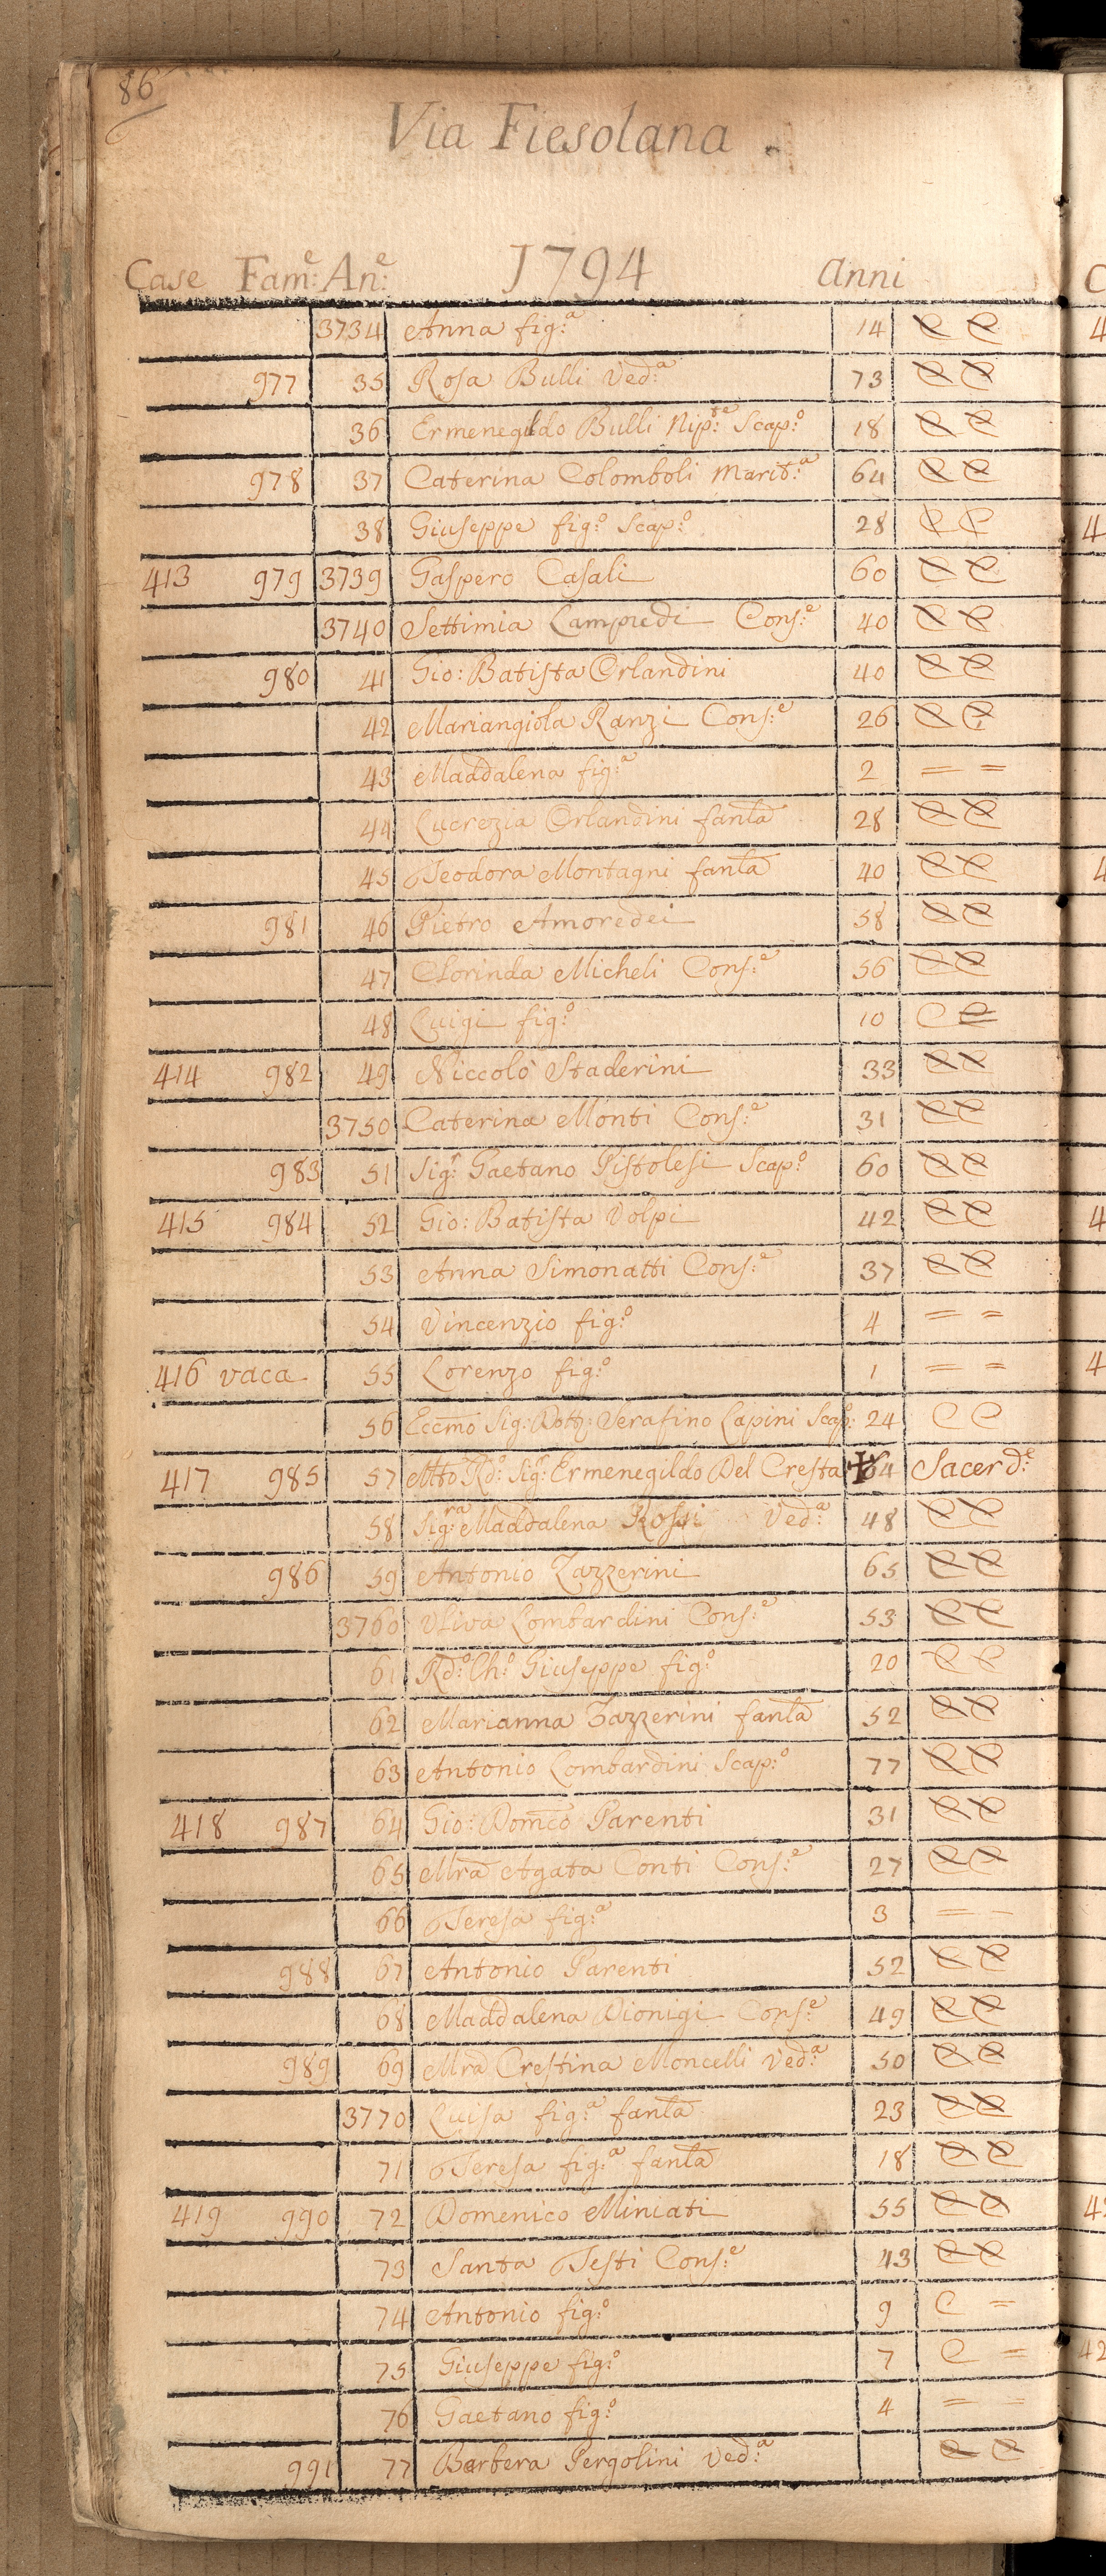 86
Via Fiesolana.
Case Fam:e An:e 1794 anni
3734 Anna fig:a 14 C C
977 35 Rosa Bulli Ved:a 73 C C
36 Ermenegildo Bulli Nip:te Scap:o 18 C C
978 37 Caterina Colomboli Marit:a 64 C C
38 Giuseppe fig:o Scap:o 28 C C
413 979 3739 Gaspero Casali 60 C C
3740 Settimia Lampredi Cons:e 40 C C
980 41 Gio: Batista Orlandini 40 C C
42 Mariangiola Ranzi Cons:e 26 C C
43 Maddalena fig:a 2 = =
44 Lucrezia Orlandini fanla 28 C C
45 Teodora Montagni fanla 40 C C
981 46 Pietro Amoredei 58 C C
47 Clorinda Micheli Cons:e 56 C C
48 Luigi fig:o 10 C =
414 982 49 Niccolò Staderini 33 C C
3750 Caterina Monti Cons:e 31 C C
983 51 Sig:r Gaetano Pistolesi Scap:o 60 C C
415 984 52 Gio: Batista Volpi 42 C C
53 Anna Simonatti Cons:e 37 C C
54 Vincenzio fig:o 4 = =
416 vaca 55 Lorenzo fig:o 1 = =
56 Eccmo Sig: Dott: Serafino Lapini Scap:o 24 C C
417 985 57 Mtto Rd:o Sig:r Ermenegildo Del Cresta 64 Sacerd:e
58 Sig:ra Maddalena Rossi Ved:a 48 C C
986 59 Antonio Zazzerini 65 C C
3760 Uliva Lombardini Cons:e 53 C C
61 Rd:o Ch:o Giuseppe fig:o 20 C C
62 Marianna Zazzerini fanla 52 C C
63 Antonio Lombardini Scap:o 77 C C
418 987 64 Gio: Domco Parenti 31 C C
65 Mra Agata Conti Cons:e 27 C C
66 Teresa fig:a 3 = =
988 67 Antonio Parenti 52 C C
68 Maddalena Dionigi Cons:e 49 C C
989 69 Mra Crestina Moncelli Ved:a 50 C C
3770 Luisa fig:a fanla 23 C C
71 Teresa fig:a fanla 18 C C
419 990 72 Domenico Mincati 55 C C
73 Santa Testi Cons:e 43 C C
74 Antonio fig:o 9 C =
75 Giuseppe fig:o 7 C =
76 Gaetano fig:o 4 = =
991 77 Barbera Pergolini Ved:a C C